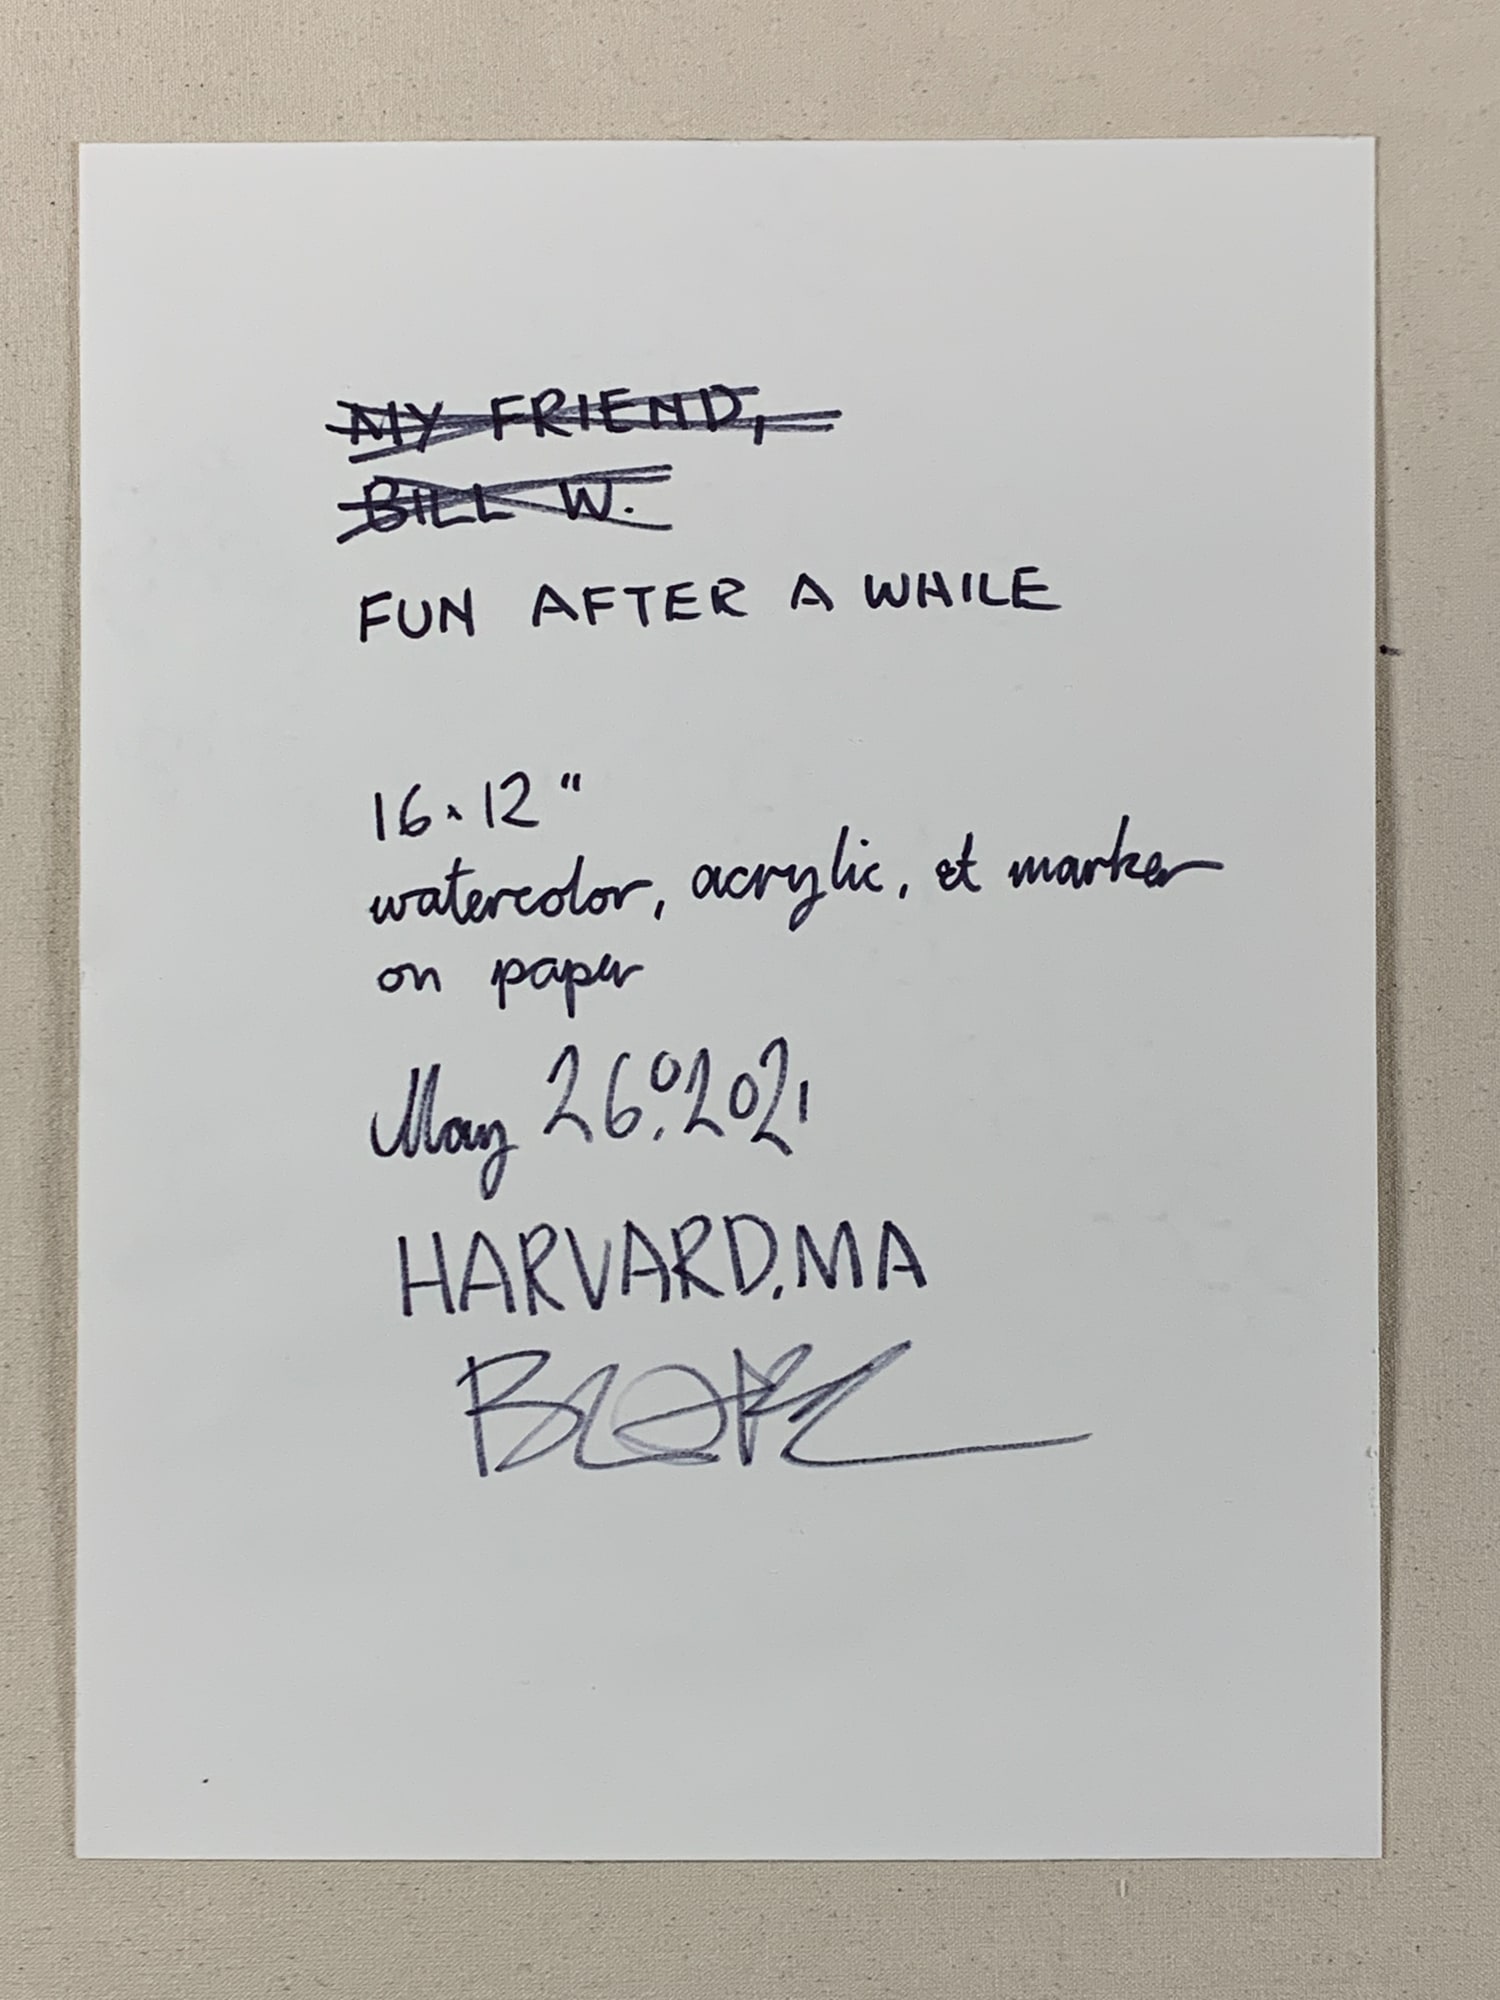 MY FRIEND,
BILL W.
FUN AFTER A WHILE
16 x 12 "
watercolor, acrylic, et marker
on paper
May 26, 2021
HARVARD, MA